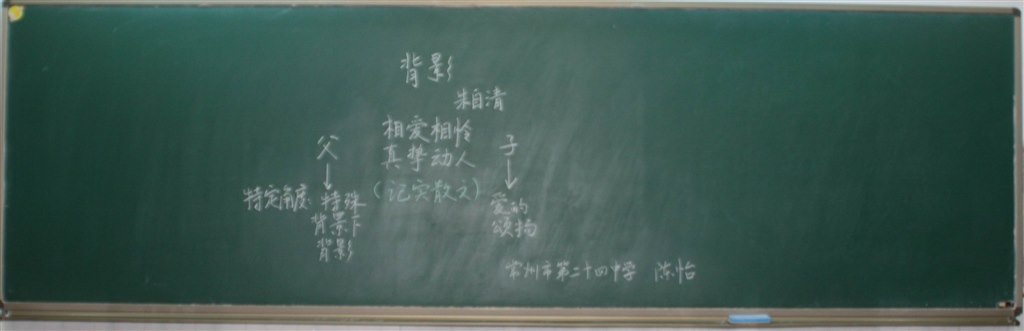 背影
朱自清
父 相爱相怜 子
真挚动人
特定角度 特殊 (记实散文) 爱的
背景下 颂扬
背影
常州市第二十四中学 陈怡